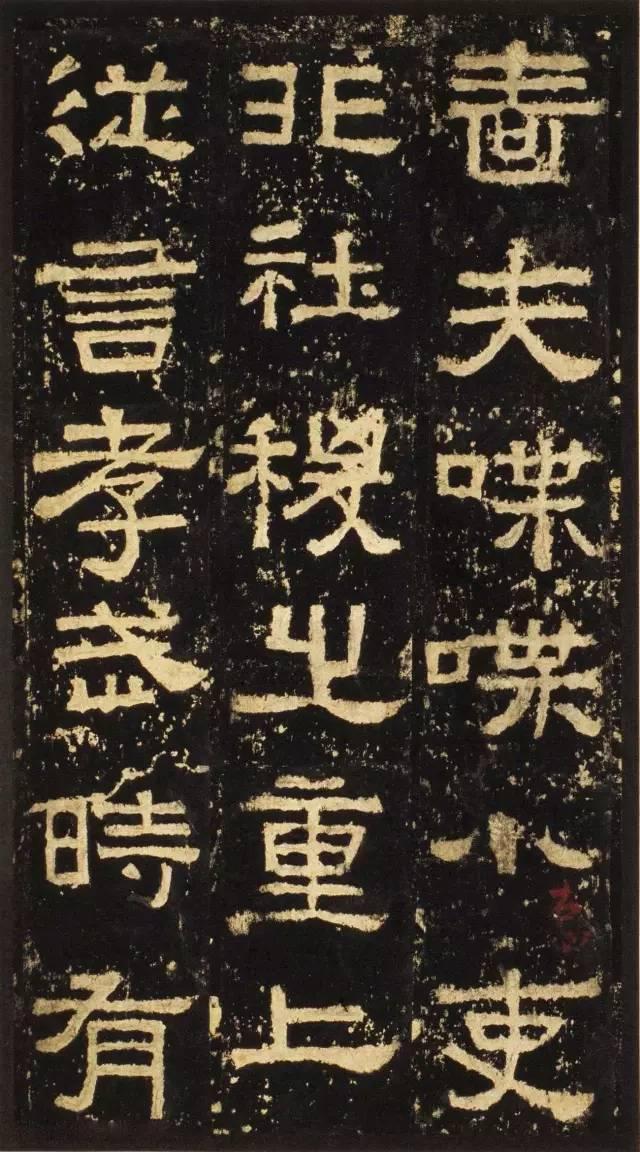 啬夫喋喋小吏
非社稷之重上
従言孝武時有